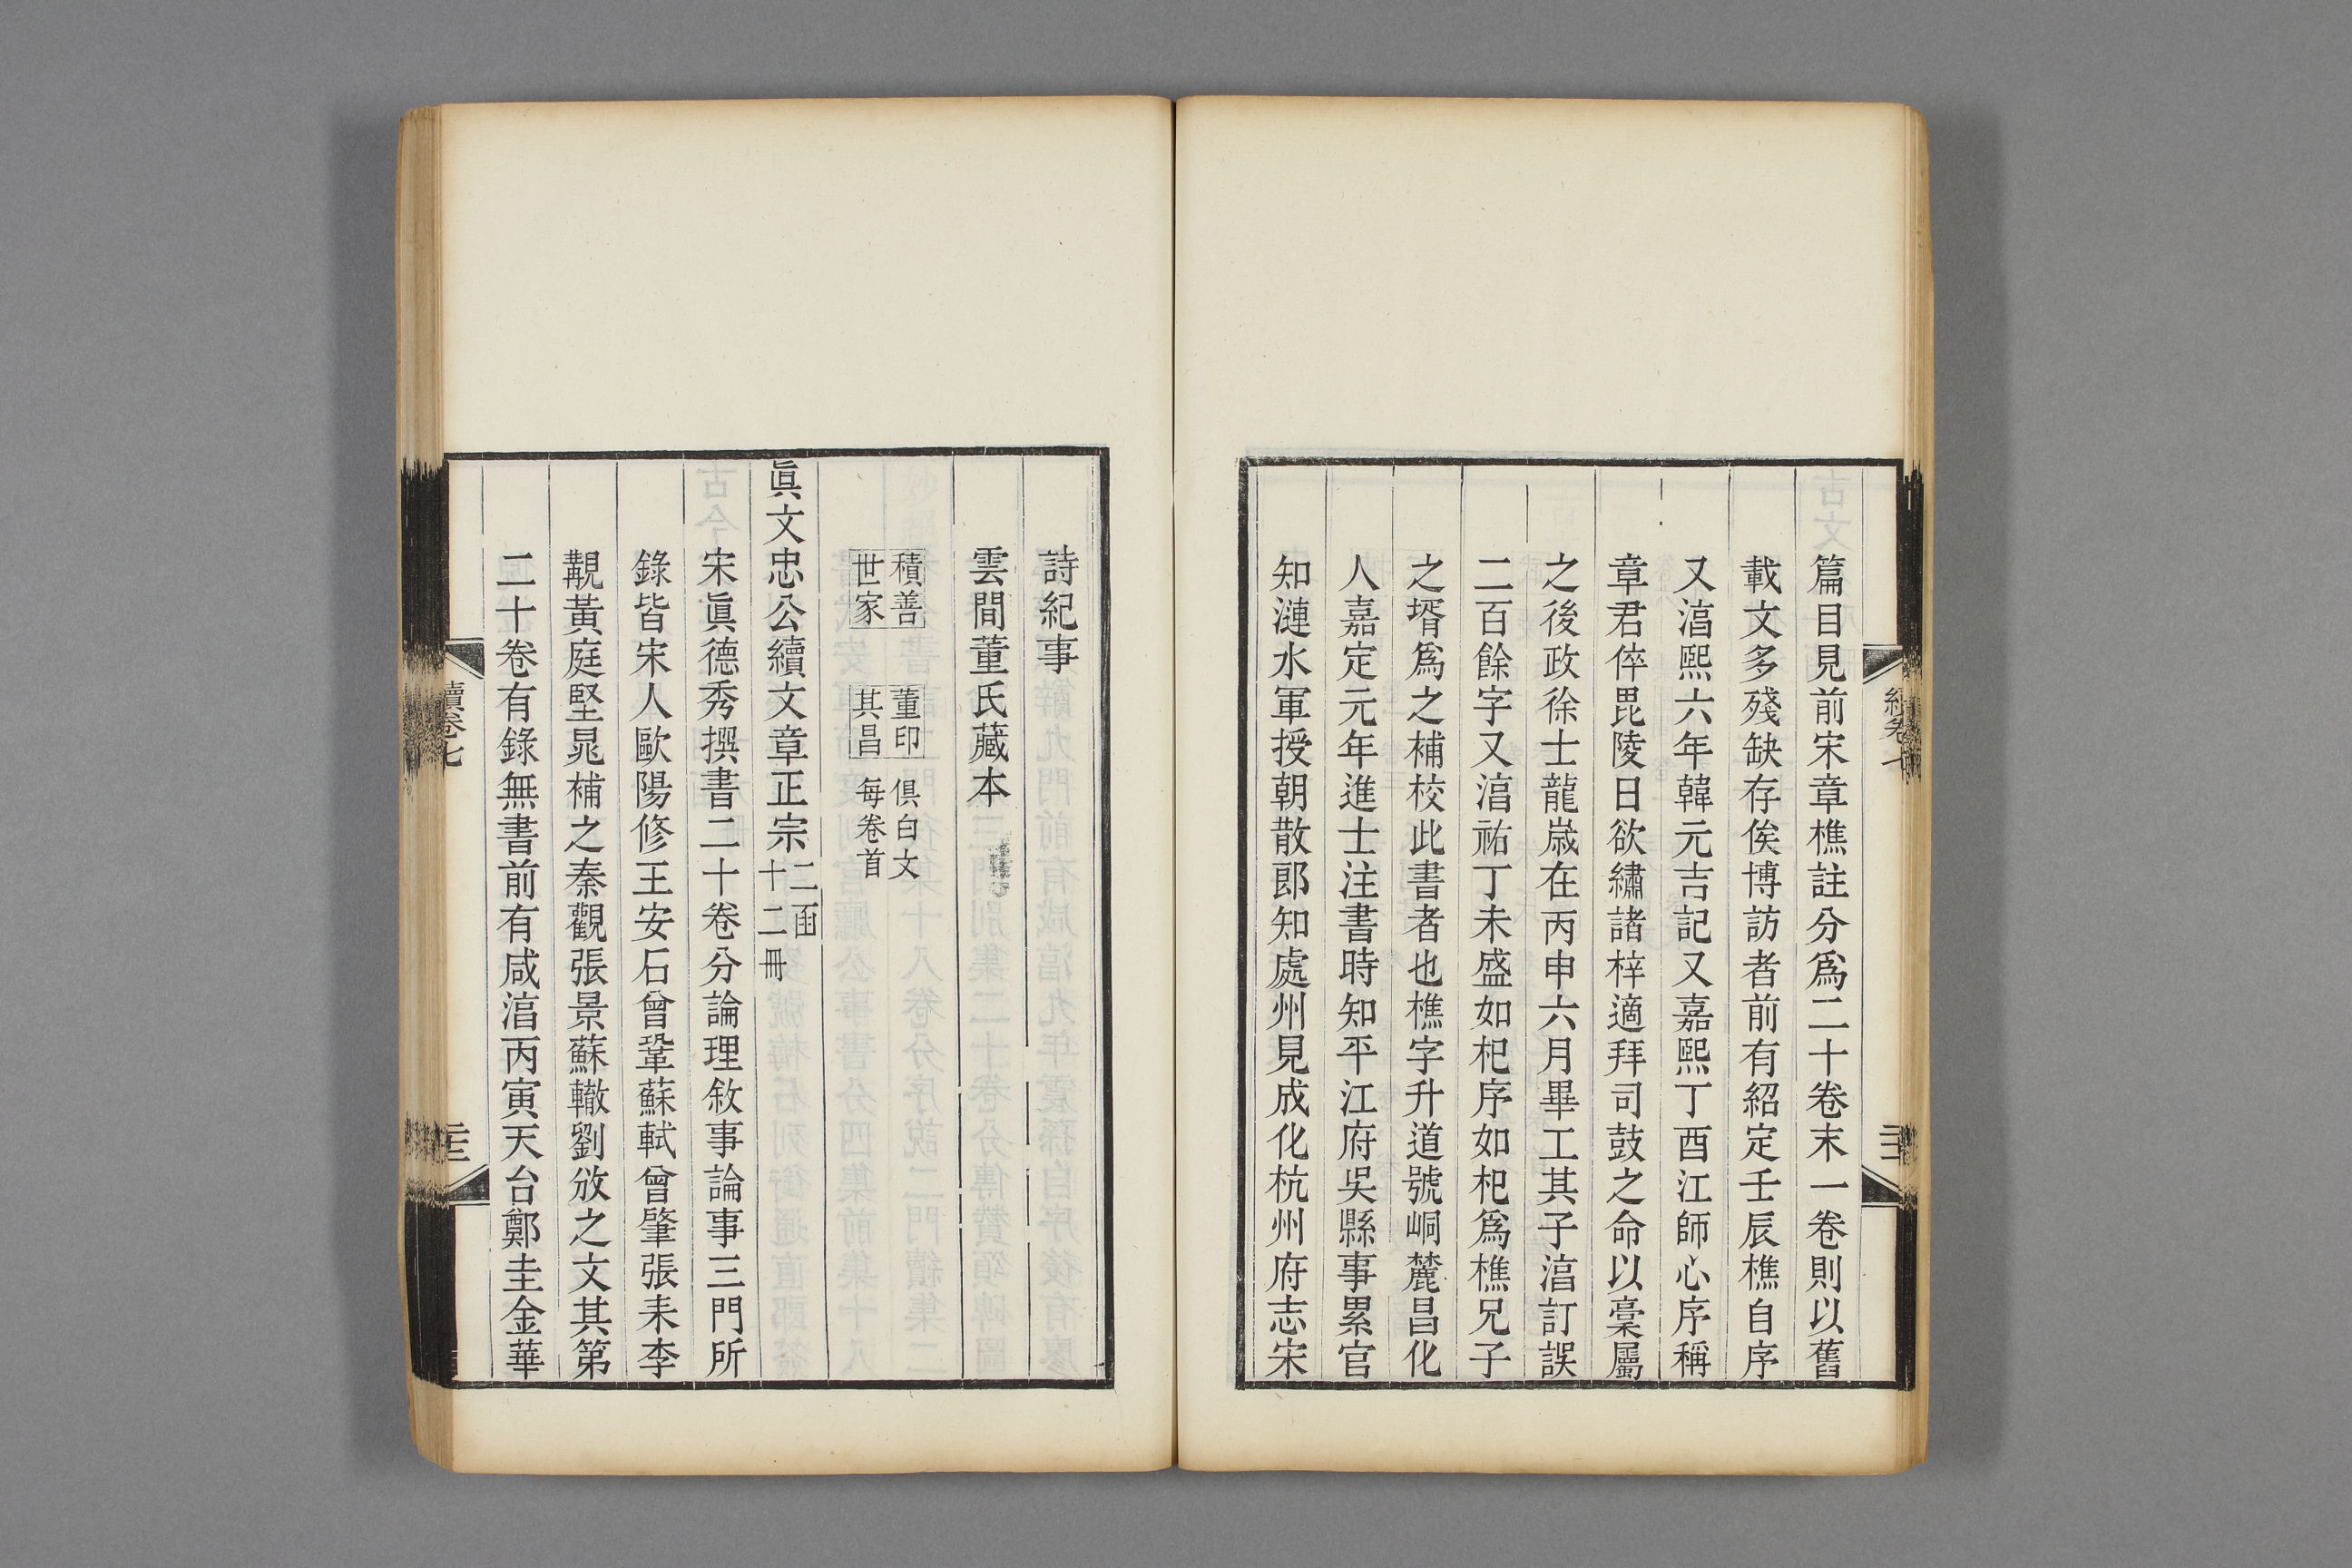 篇目見前宋章樵註分爲二十卷末一卷則以舊
載文多殘缺存俟博訪者前有紹定壬辰樵自序
又湻熙六年韓元吉記又嘉熙丁酉江師心序稱
章君倅毘陵日欲繡諸梓適拜司鼓之命以稾屬
之後政徐士龍嵗在丙申六月畢工其子湻訂誤
二百餘字又湻祐丁未盛如杞序如杞爲樵兄子
之壻爲之補校此書者也樵字升道號峒麓昌化
人嘉定元年進士注書時知平江府吳縣事累官
知漣水軍授朝散郎知處州見成化杭州府志宋
詩紀事
雲間董氏藏本
積善
世家
董印
其昌
俱白文
每卷首
眞文忠公續文章正宗
二函
十二冊
宋眞德秀撰書二十卷分論理敘事論事三門所
錄皆宋人歐陽修王安石曾鞏蘇軾曾肇張耒李
覯黃庭堅晁補之秦觀張景蘇轍劉攽之文其第
二十卷有錄無書前有咸湻丙寅天台鄭圭金華
續卷七